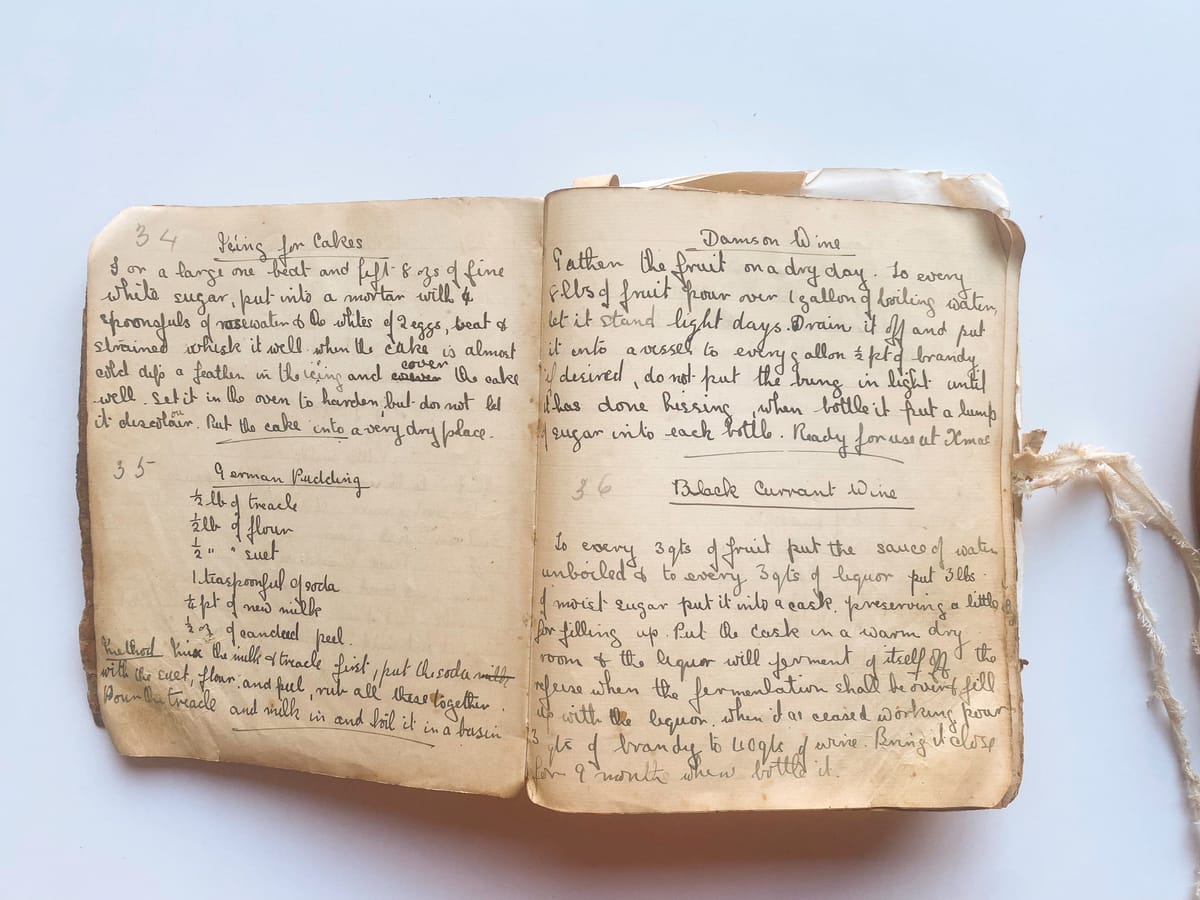 34
Icing for Cakes
For a large one beat and sift 8 ozs of fine
white sugar, put into a mortar with 4
spoonfuls of rosewater & the whites of 2 eggs, beat &
strained whisk it well when the cake is almost
cold dip a feather in the icing and cover the cake
well. Set it in the oven to harden, but do not let
it discolour. Put the cake into a very dry place.
35
German Pudding
½ lb of treacle
½ lb of flour
½ " " suet
1 teaspoonful of soda
¼ pt of new milk
½ oz of candied peel.
Method Mix the milk & treacle first, put the soda
with the suet, flour, and peel, rub all these together.
Pour the treacle and milk in and boil it in a basin
Damson Wine
Gather the fruit on a dry day. To every
8 lbs of fruit pour over 1 gallon of boiling water,
let it stand light days. Drain it off and put
it into a vessel to every gallon ½ pt of brandy
if desired, do not put the bung in light until
it has done hissing, when bottle it put a lump
of sugar into each bottle. Ready for use at Xmas
36
Black Currant Wine
To every 3 qts of fruit put the sauce of water
unboiled & to every 3 qts of liquor put 3 lbs
of moist sugar put it into a cask, preserving a little
for filling up. Put the cask in a warm dry
room & the liquor will ferment of itself off the
refuse when the fermentation shall be over & fill
up with the liquor. when it as ceased working pour
3 qts of brandy to 40 qts of wine. Bung it close
for 9 month when bottle it.